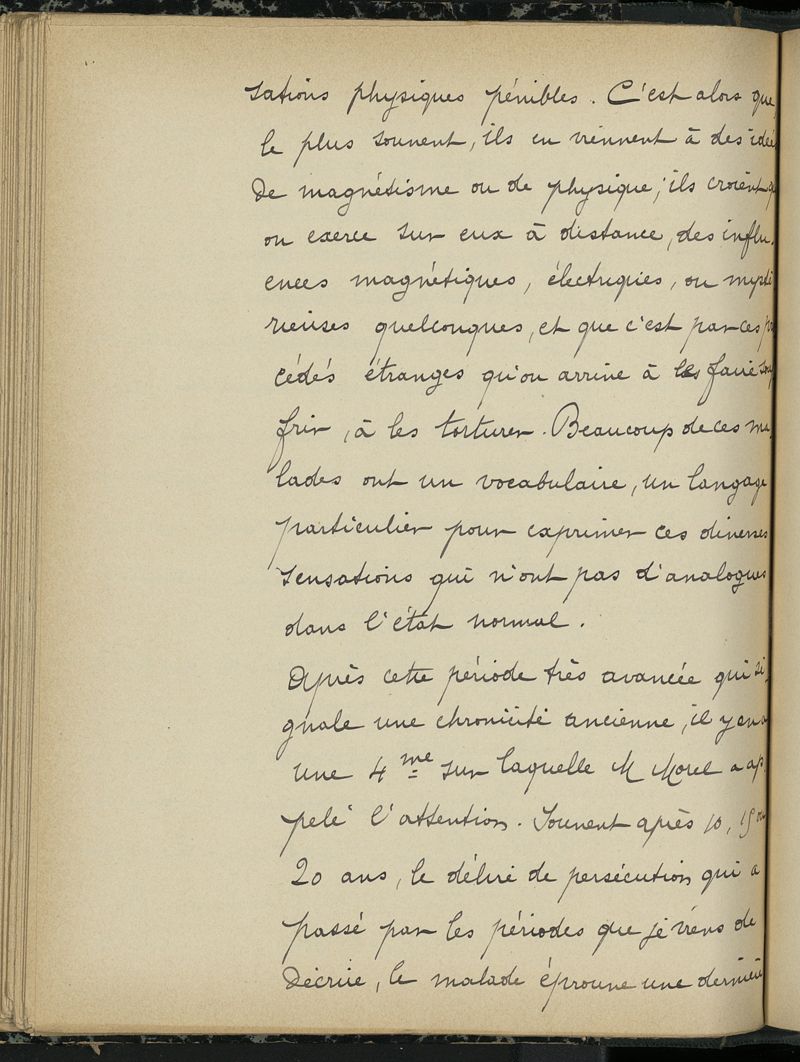 sations physiques pénibles. C'est alors que,
le plus souvent, ils en viennent à des idée
de magnétisme ou de physique; ils croient q
on exerce sur eux à distance, des influ-
ences magnétiques, électriques, ou mysté
rieuses quelconques, et que c'est par ces pro
cédés étranges qu'on arrive à les faire souf
frir, à les torturer. Beaucoup de ces ma-
lades ont un vocabulaire, un langage
particulier pour exprimer ces diverses
sensations qui n'ont pas d'analogues
dans l'état normal.
Après cette période très avancée qui si-
gnale une chronicité ancienne, il y en a
une 4me sur laquelle M Morel a ap-
pelé l'attention. Souvent après 10, 15 ou
20 ans, le délire de persécution qui a
passé par les périodes que je viens de
décrire, le malade éprouve une dernière